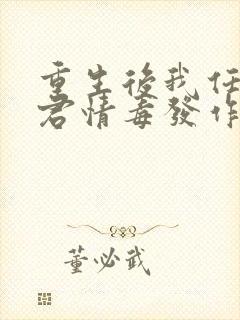 重生後我任
君情毒發作
董必武